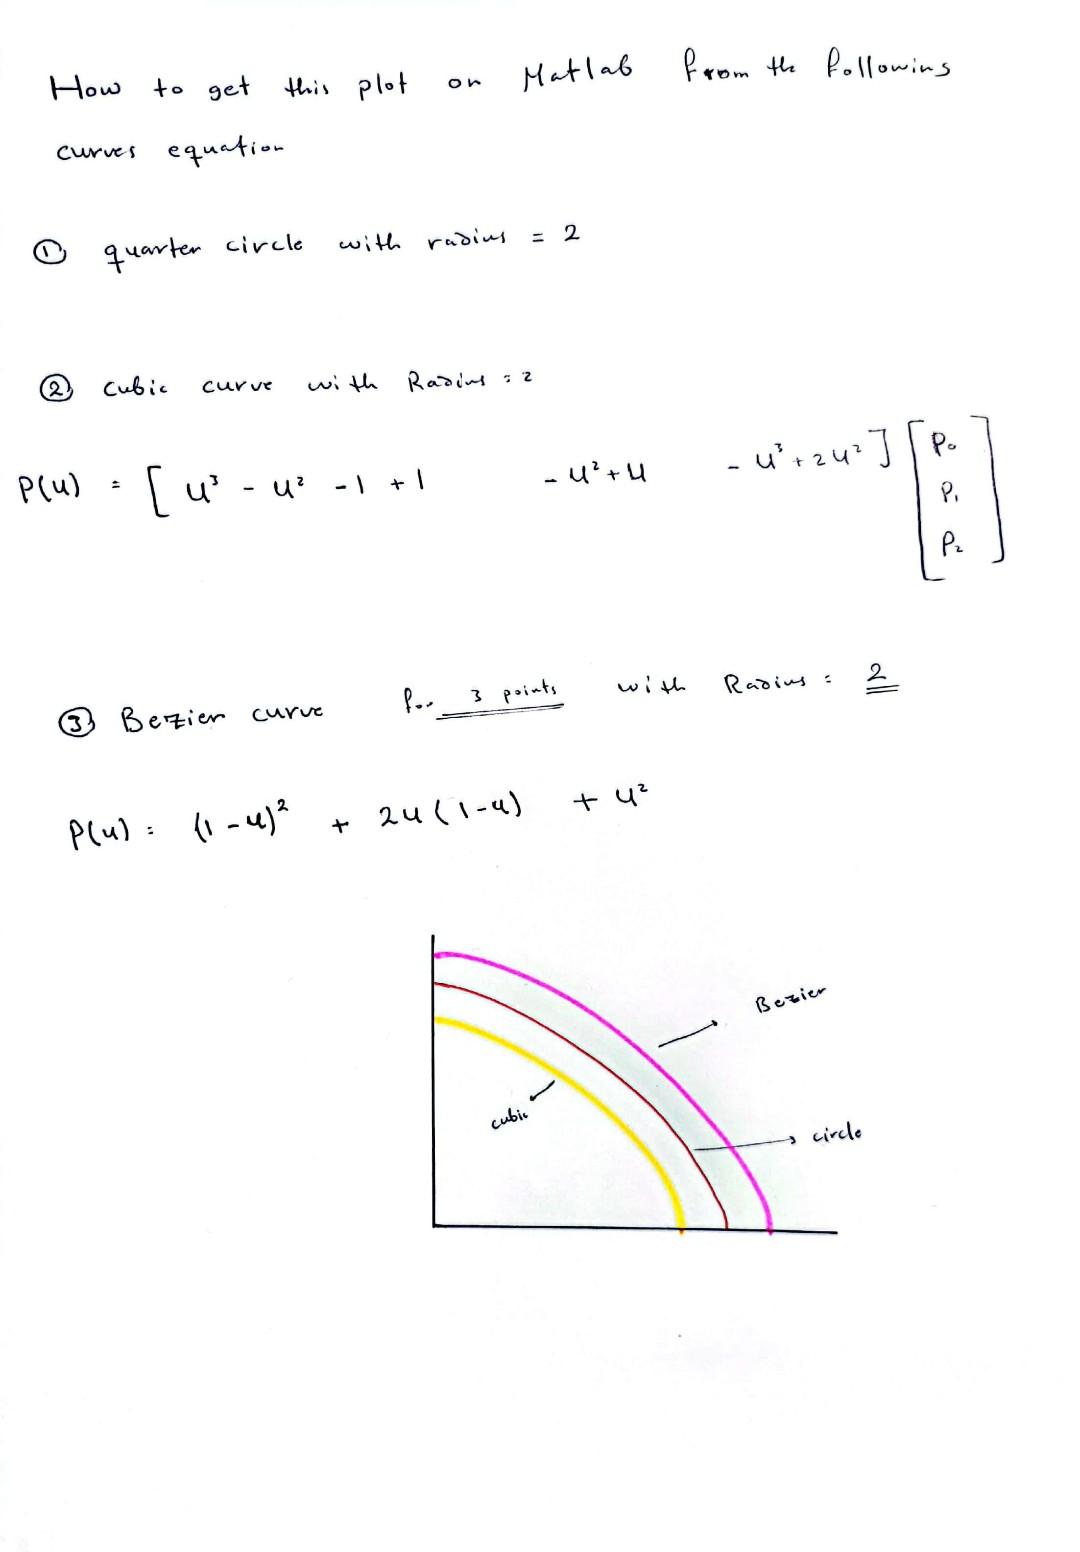 How to get this plot on Matlab from the following
curves equation
① quarter circle with radius = 2
② cubic curve with Radius = 2
P(u) = [ u³ - u² - 1 + 1   - u² + u   - u³ + 2u² ] [ P₀
P₁
P₂ ]
③ Bezier curve for 3 points with Radius = 2
P(u) = (1-u)² + 2u(1-u) + u²
Bezier
cubic
circle